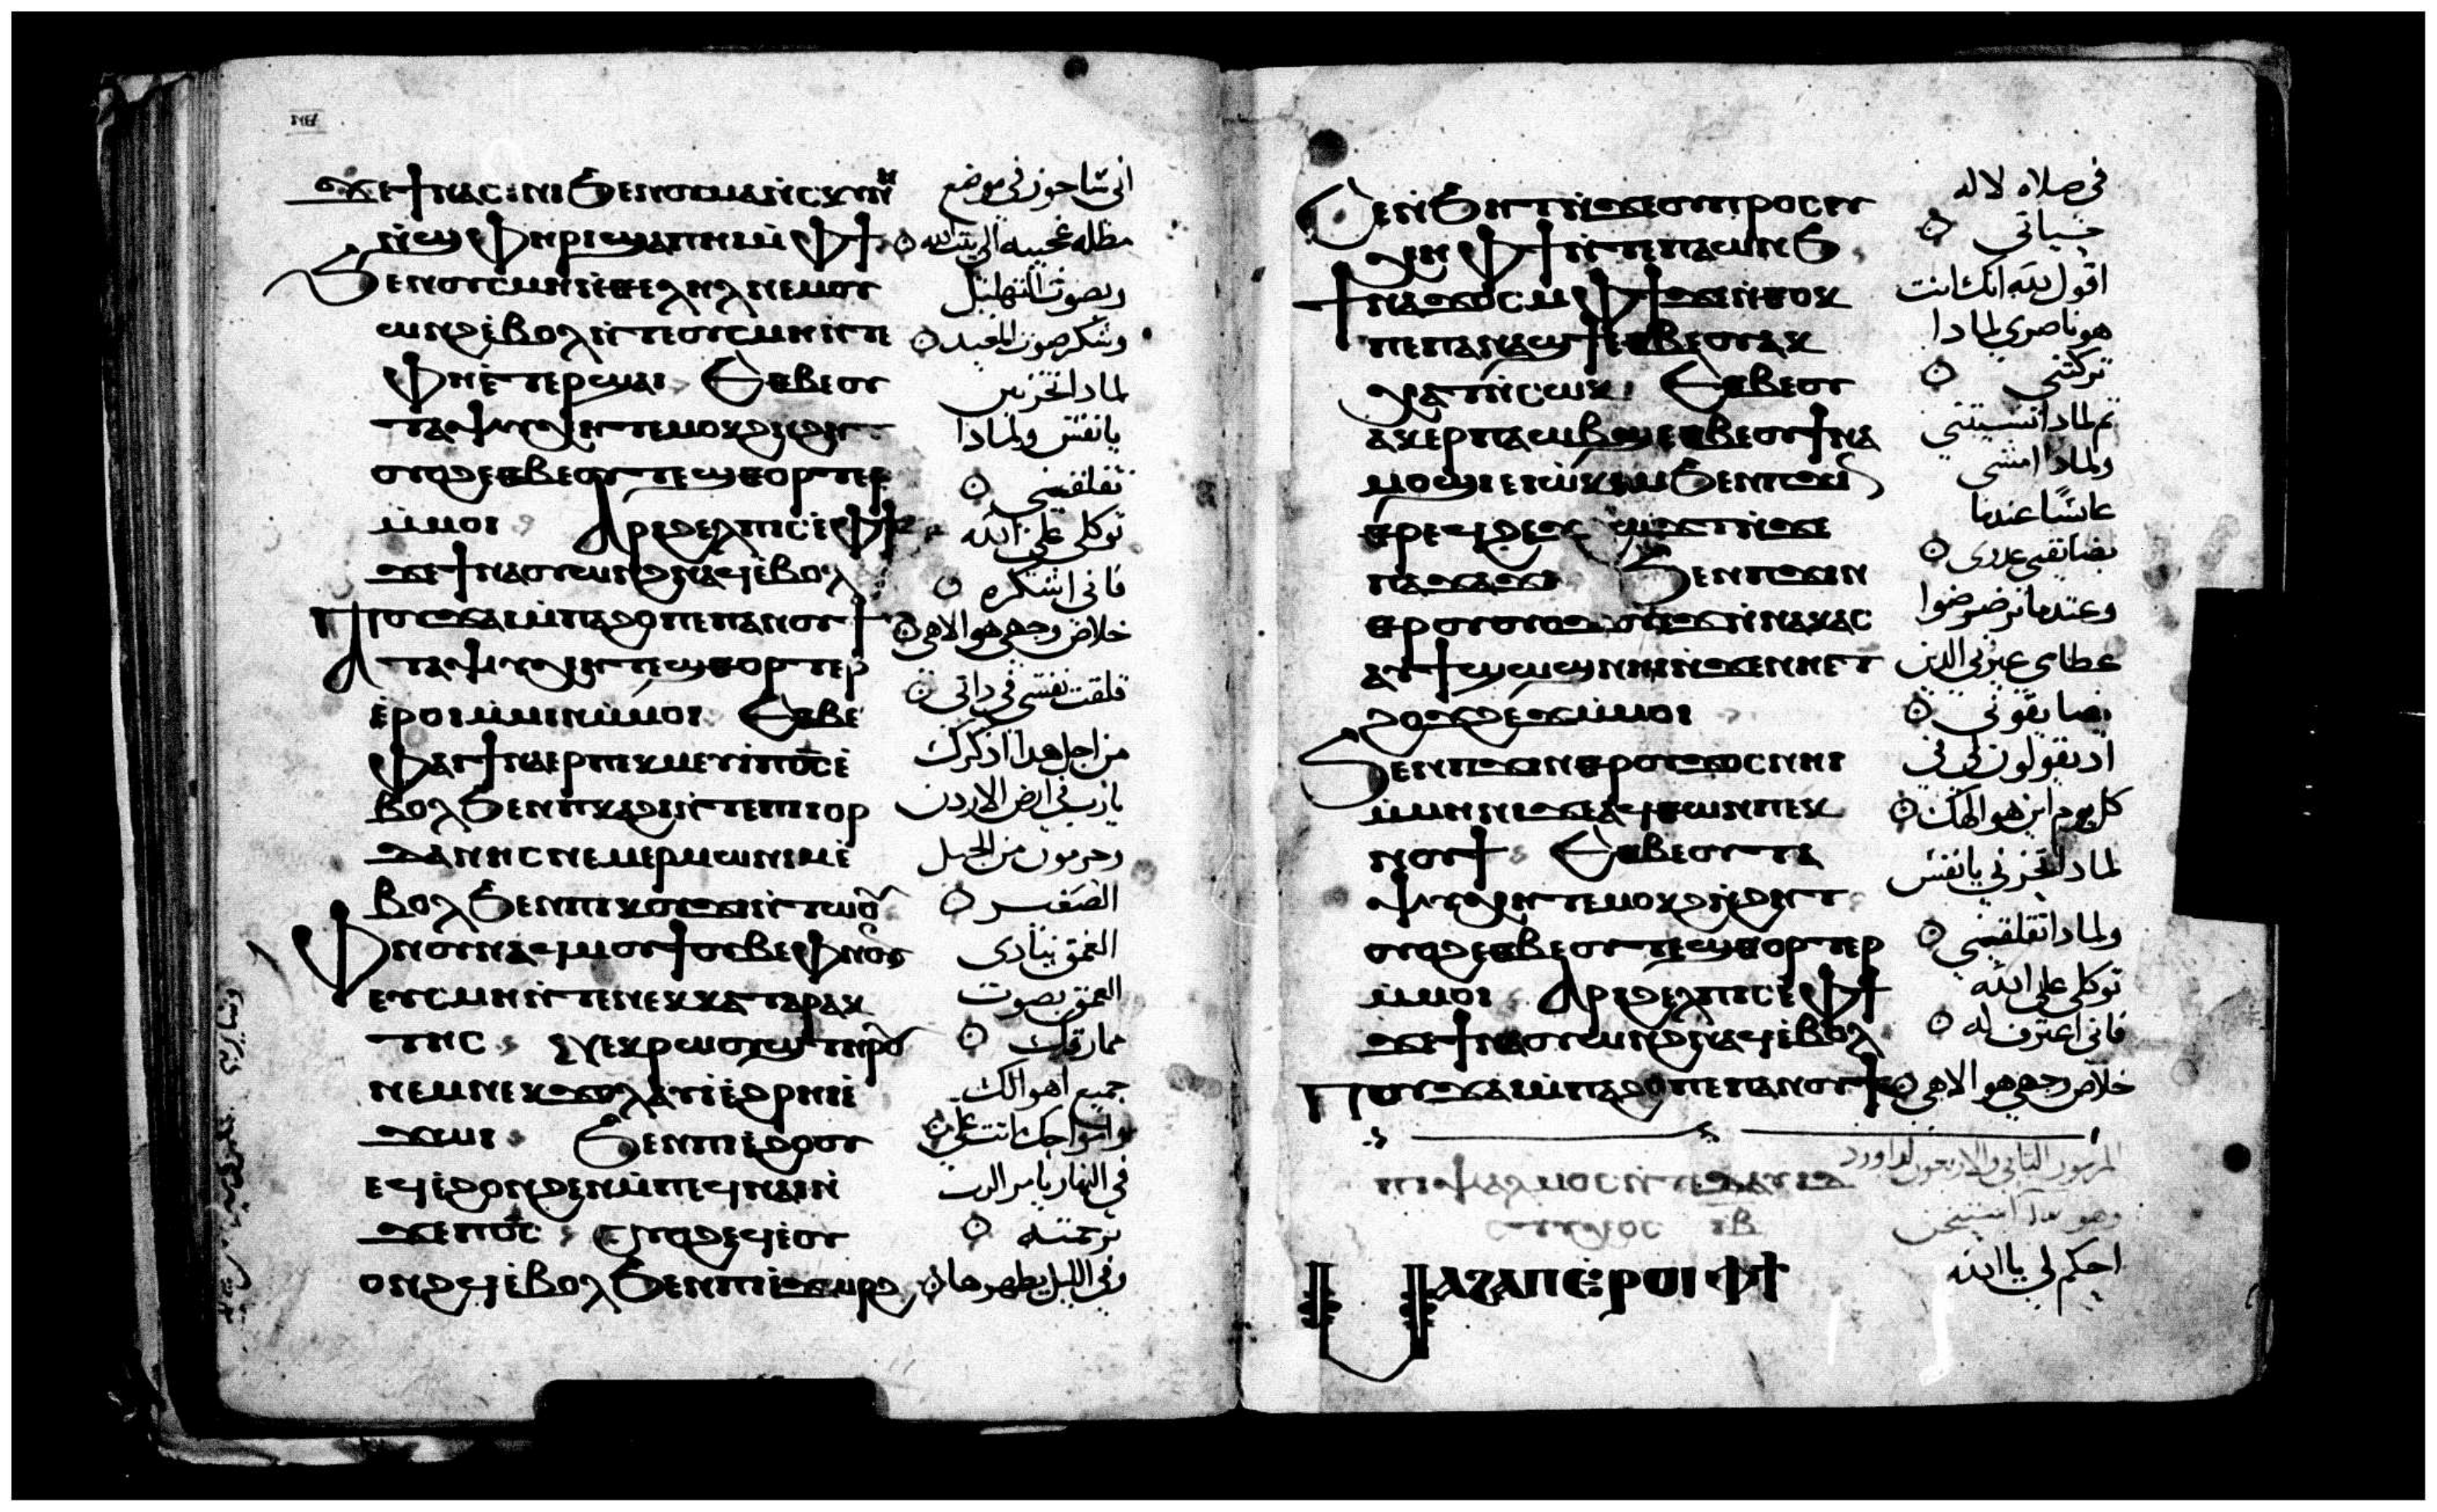 ϫⲉϯⲛⲁⲥⲓⲛⲓϧⲉⲛⲟⲩⲙⲁⲛ̀ⲥⲕⲩⲛⲏ
ⲛ̀ϣⲫⲏⲣⲓϣⲁⲡⲏⲓⲙ̀ⲫϯ
ϧⲉⲛⲟⲩⲥⲙⲏⲛ̀ⲑⲉⲗⲏⲗⲛⲉⲙⲟⲩ
ⲱⲛϩⲉ̀ⲃⲟⲗⲛ̀ⲧⲉⲟⲩⲥⲙⲏⲛ̀ⲧⲉ
ⲫⲏⲉ̀ⲧⲉⲣϣⲁⲓ ⲉⲑⲃⲉⲟⲩ
ⲧⲁⲯⲩⲭⲏⲧⲉⲙⲟⲕϩⲛ̀ϩⲏⲧ
ⲟⲩⲟϩⲉⲑⲃⲉⲟⲩⲧⲉϣⲑⲟⲣⲧⲉⲣ
ⲙ̀ⲙⲟⲓ ⲁⲣⲓϩⲉⲗⲡⲓⲥⲉ̀ⲫϯ
ϫⲉϯⲛⲁⲟⲩⲱⲛϩⲛⲁϥⲉ̀ⲃⲟⲗ
ⲡⲟⲩϫⲁⲓⲙ̀ⲡⲁϩⲟⲡⲉⲡⲁⲛⲟⲩϯ
ⲁⲧⲁⲯⲩⲭⲏⲧⲉϣⲑⲟⲣⲧⲉⲣ
ⲉ̀ⲣⲟⲓⲙ̀ⲙⲓⲛⲙ̀ⲙⲟⲓ ⲉⲑⲃⲉ
ⲫⲁⲓϯⲛⲁⲉⲣⲡⲉⲕⲙⲉⲩⲓ̀ⲡⲟ̅ⲥ̅ⲉ̀
ⲃⲟⲗϧⲉⲛⲡⲕⲁϩⲓⲛ̀ⲧⲉⲡⲓⲟⲣ
ⲇⲁⲛⲏⲥⲛⲉⲙⲉⲣⲙⲱⲛⲓⲙⲉ̀
ⲃⲟⲗϧⲉⲛⲡⲓⲕⲟⲩϫⲓⲛ̀ⲧⲱⲟⲩ
ⲫⲛⲟⲩⲛⲁϥⲙⲟⲩϯⲟⲩⲃⲉⲫⲛⲟⲩⲛ
ⲉⲩⲥⲙⲏⲛ̀ⲧⲉⲛⲉⲕⲕⲁⲧⲁⲣⲁⲕ
ⲧⲏⲥ ⲛⲉⲕⲣⲱⲟⲩϣⲧⲏⲣⲟⲩ
ⲛⲉⲙⲛⲉⲕϫⲟⲗⲁⲩⲓ̀ⲉ̀ϩⲣⲏⲓⲉ̀
ϫⲱⲓ ϧⲉⲛⲡⲓⲉ̀ϩⲟⲟⲩ
ⲉϥⲉ̀ϩⲟⲛϩⲉⲛⲙ̀ⲡⲉϥⲛⲁⲓⲛ̀
ϫⲉⲡⲟ̅ⲥ̅ ⲟⲩⲟϩⲉϥⲉ̀ⲟⲩ
ⲟⲛϩϥⲉ̀ⲃⲟⲗϧⲉⲛⲡⲓⲉ̀ϫⲱⲣϩ
انى ساجوز فى موضع
مظله عجيبه الى بيت الله
وبصوت التهليل
وشكر صوت المعيد
لماذا تحزنين
يا نفسى ولماذا
تقلقينى
توكلى على الله
فانى اشكره
خلاص وجهى هو الاهى
قلقت نفسى فى ذاتى
من اجل هذا اذكرك
يا رب فى ارض الاردن
وحرمون من الجبل
الصغير
العمق ينادى
العمق بصوت
جميع اهوالك
فى النهار يامر الرب
برحمته
وفى الليل يظهرها
ϧⲉⲛϧⲏⲧⲡⲓϫⲉⲟⲩⲡⲣⲟⲥⲉⲩ
ⲭⲏⲙ̀ⲫϯⲛ̀ⲧⲉⲡⲁⲱⲛϧ
ϯⲛⲁϫⲟⲥⲙ̀ⲫϯϫⲉⲛ̀ⲑⲟⲕ
ⲡⲉⲡⲁⲛⲁϣϯⲉⲑⲃⲉⲟⲩⲁⲕ
ⲭⲁⲧⲛ̀ⲥⲱⲕ ⲉⲑⲃⲉⲟⲩ
ⲁⲕⲉⲣⲡⲁⲱⲃϣⲉⲑⲃⲉⲟⲩϯⲛⲁ
ⲙⲟϣⲓⲉⲓⲱ̀ⲕⲉⲙϧⲉⲛⲡϫⲓⲛ
ⲑⲣⲉϥϩⲉϫϩⲱϫⲧⲛ̀ϫⲉ
ⲡⲁϫⲁϫⲓ ϧⲉⲛⲡϫⲓⲛ
ⲑⲣⲟⲩⲟⲩⲟϫⲟⲩⲉϫⲛ̀ⲛⲁⲕⲁⲥ
ⲁⲩϯϣⲱϣⲛⲏⲓⲛ̀ϫⲉⲛⲏⲉⲧ
ϩⲟϫϩⲉϫⲙ̀ⲙⲟⲓ
ϧⲉⲛⲡϫⲓⲛⲑⲣⲟⲩϫⲟⲥⲛⲏⲓ
ⲙ̀ⲙⲏⲛⲓϫⲉⲁϥⲑⲱⲛⲡⲉⲕ
ⲛⲟⲩϯ ⲉⲑⲃⲉⲟⲩⲧⲁ
ⲯⲩⲭⲏⲧⲉⲙⲟⲕϩⲛ̀ϩⲏⲧ
ⲟⲩⲟϩⲉⲑⲃⲉⲟⲩⲧⲉϣⲑⲟⲣⲧⲉⲣ
ⲙ̀ⲙⲟⲓ ⲁⲣⲓϩⲉⲗⲡⲓⲥⲉ̀ⲫϯ
ϫⲉϯⲛⲁⲟⲩⲱⲛϩⲛⲁϥⲉ̀ⲃⲟⲗ
ⲡⲟⲩϫⲁⲓⲙ̀ⲡⲁϩⲟⲡⲉⲡⲁⲛⲟⲩϯ
ⲡⲓⲯⲁⲗⲙⲟⲥⲛ̀ⲧⲉⲇⲁⲩⲓⲇ
ⲙⲁϩⲁⲡⲉ̀ⲣⲟⲓⲫϯ
فى صلاه لاله
حياتى
اقول لله انك انت
هو ناصرى لماذا
تركتنى
لماذا نسيتنى
ولماذا امشى
عابسًا عندما
يضايقنى عدوى
وعندما ترضرضوا
عظامى عيرنى الذين
يضايقونى
اذ يقولون لى فى
كل يوم اين هو الهك
لماذا تحزنى يا نفسى
ولماذا تقلقينى
توكلى على الله
فانى اعترف له
خلاص وجهى هو الاهى
المزمور الثانى والاربعون لداوود
احكم لى يا الله